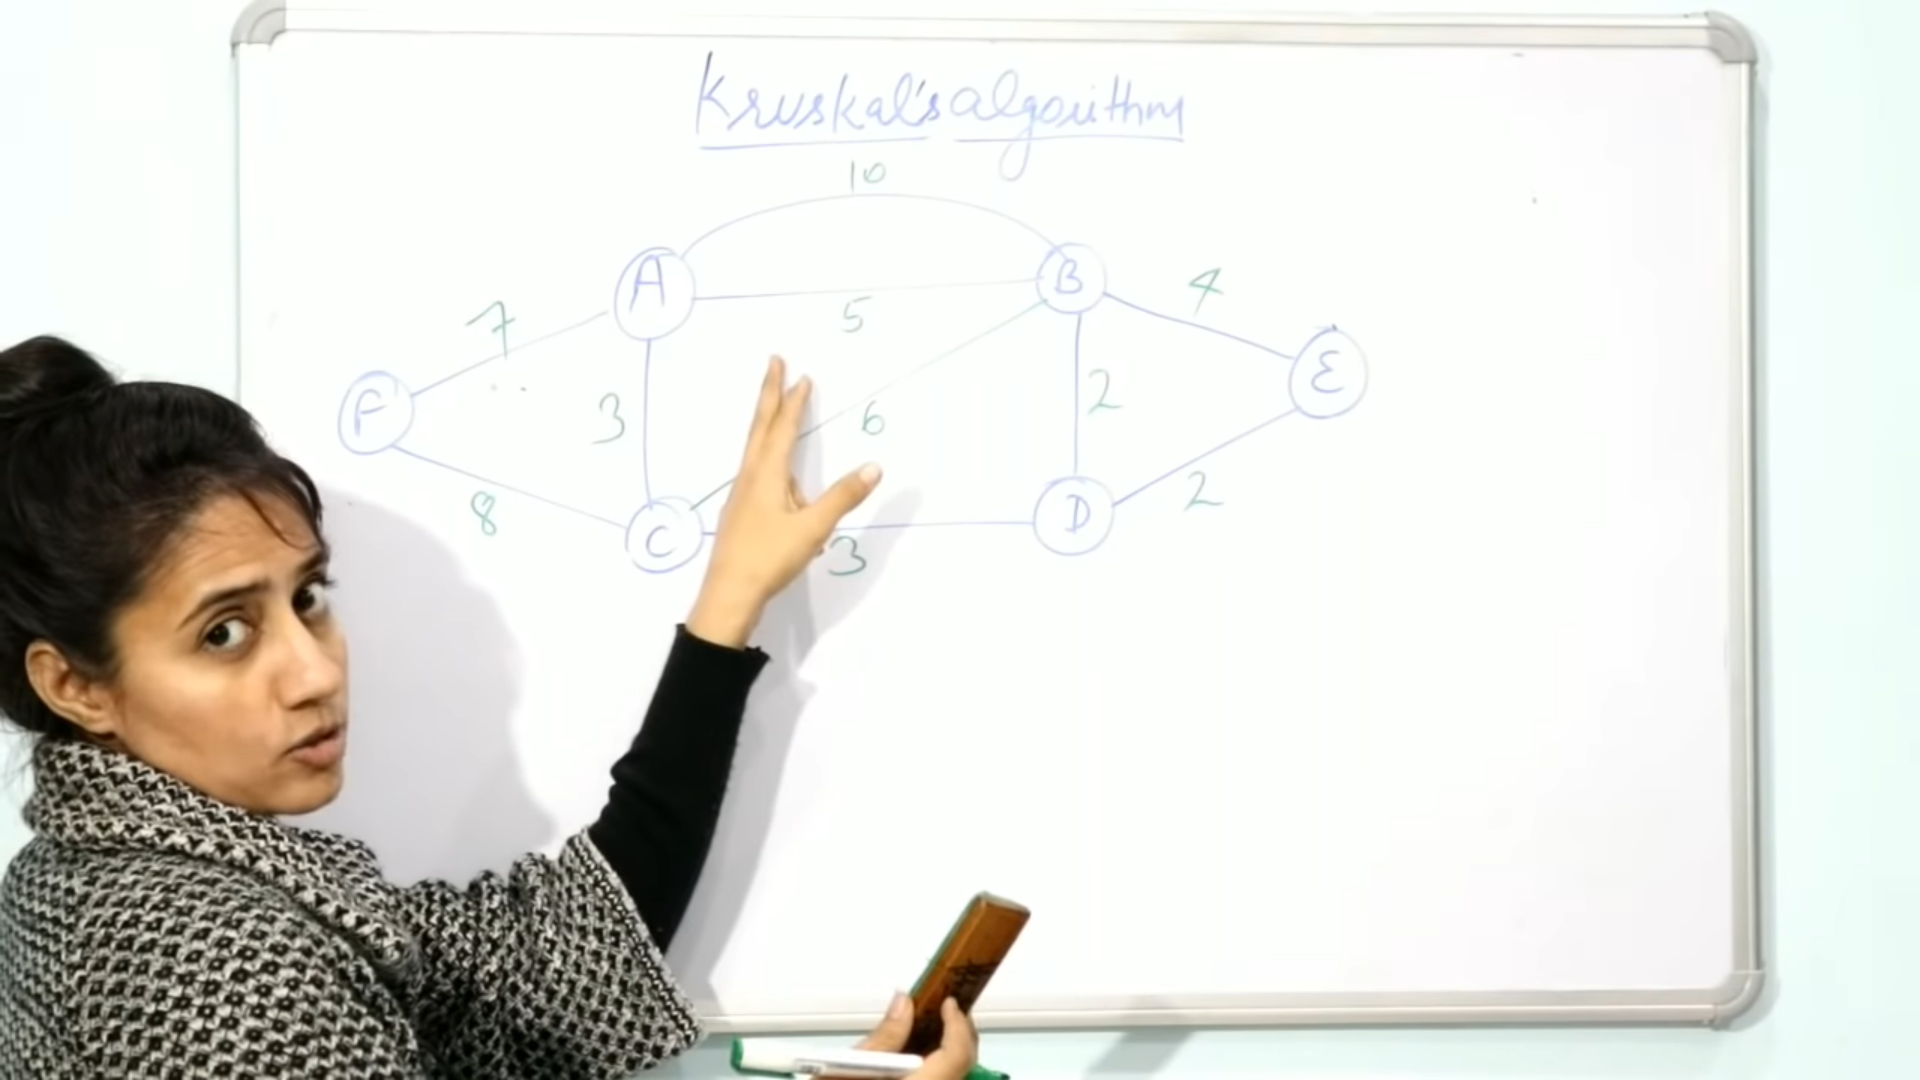 Kruskal's algorithm
10
A
B
4
7
5
E
F
3
6
2
8
C
3
D
2